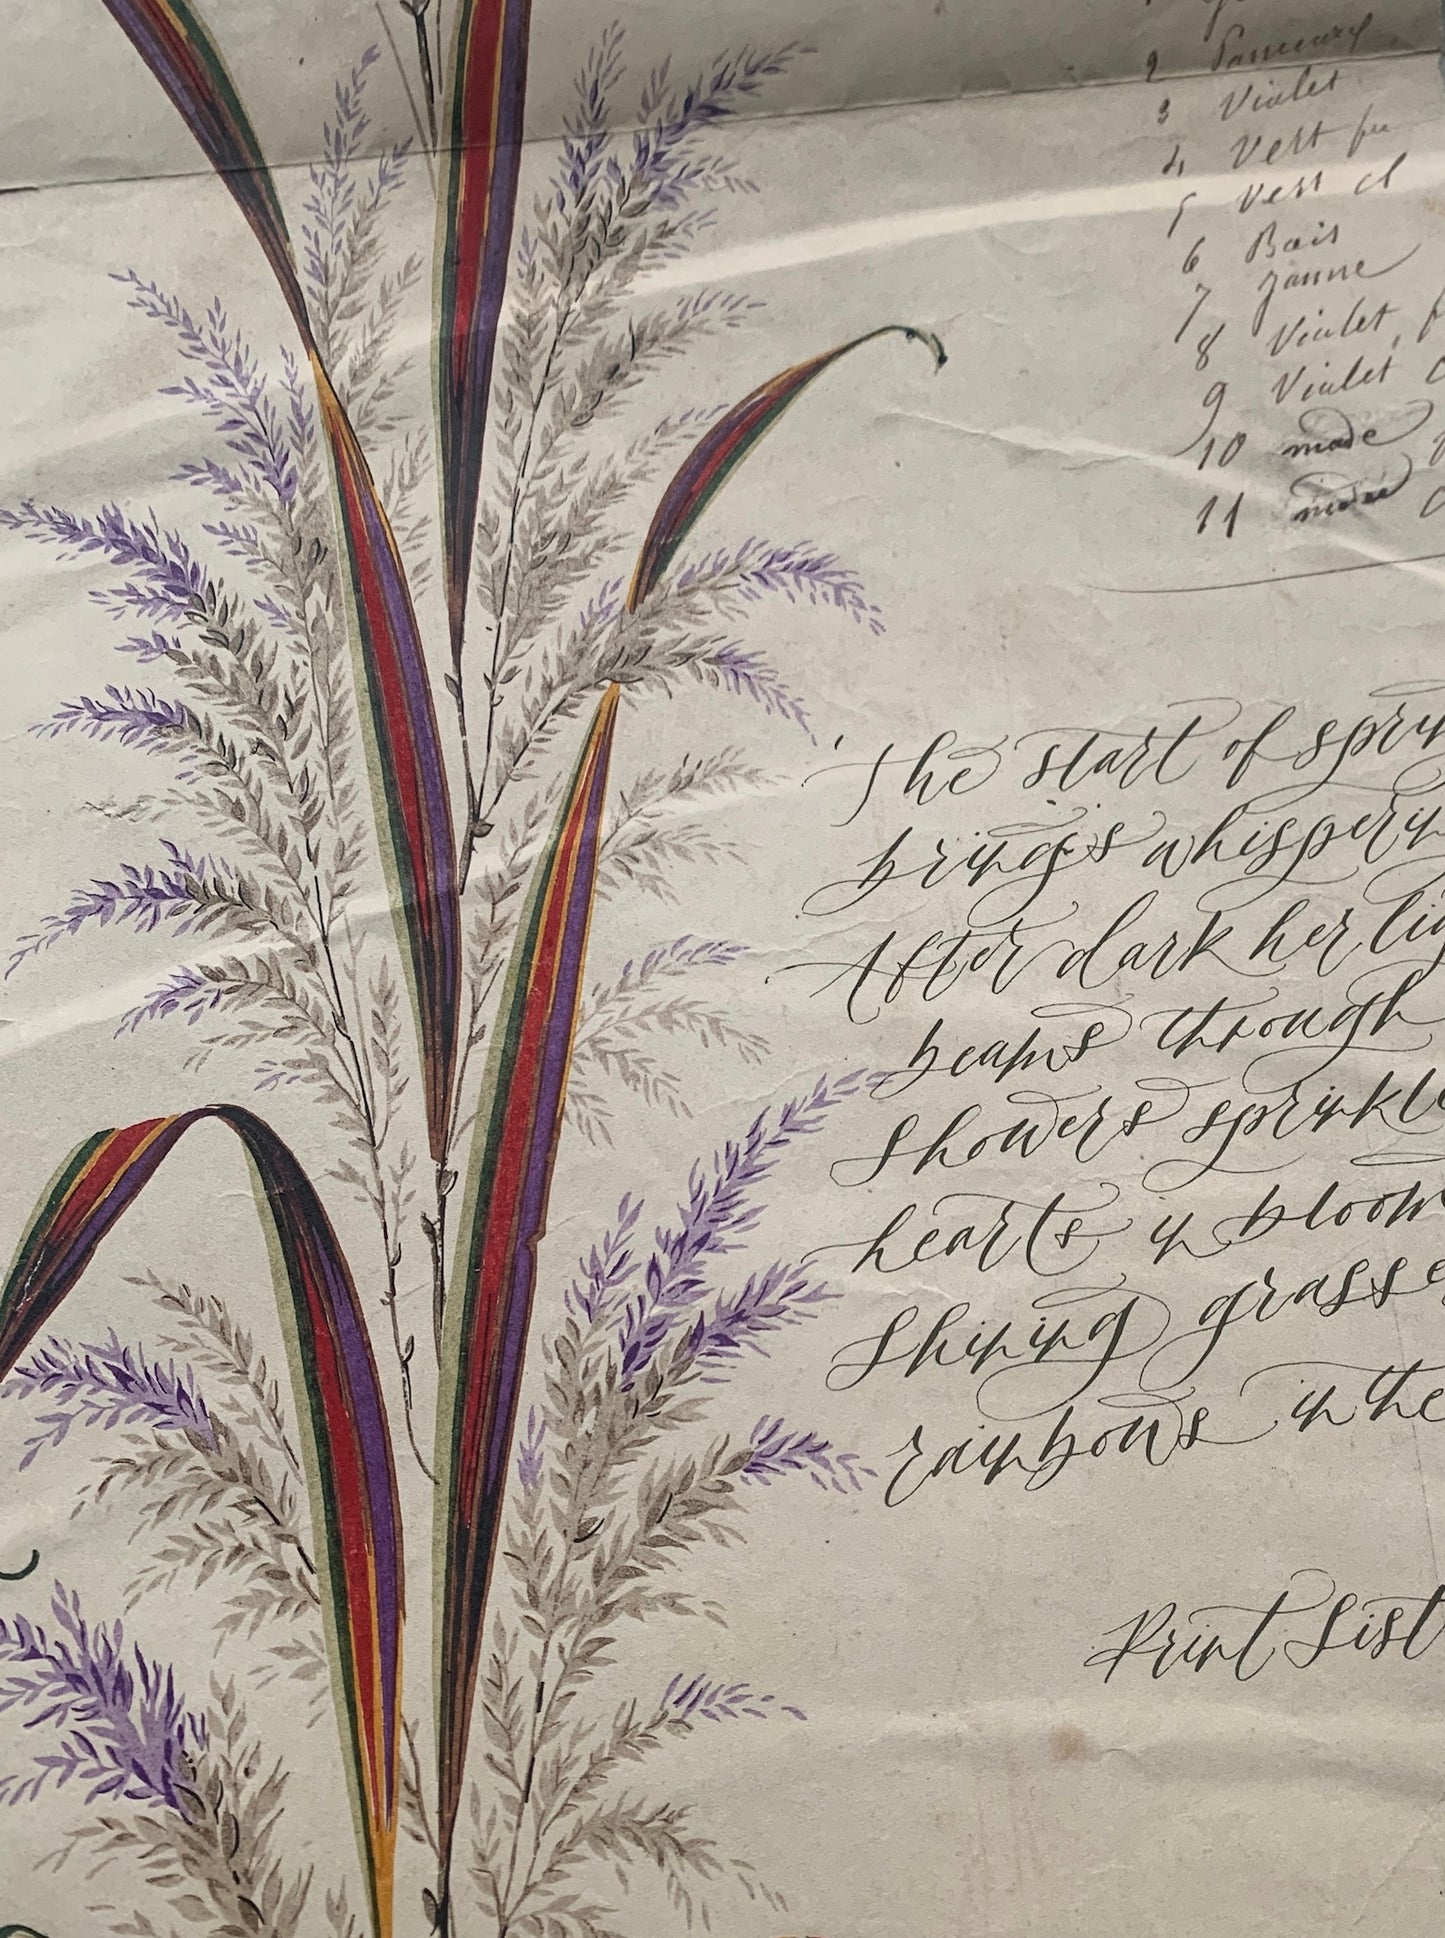 2
3 Violet
4 Vert fu
5 Vert cl
6 Bois
7 Jaune
8 Violet, f
9 Violet c
10 mode
11 mode c
'The start of sprin
brings whisperin
After dark her lig
beams through
Showers sprinkle
hearts in bloom
Shining grasse
rainbows in the
Print List